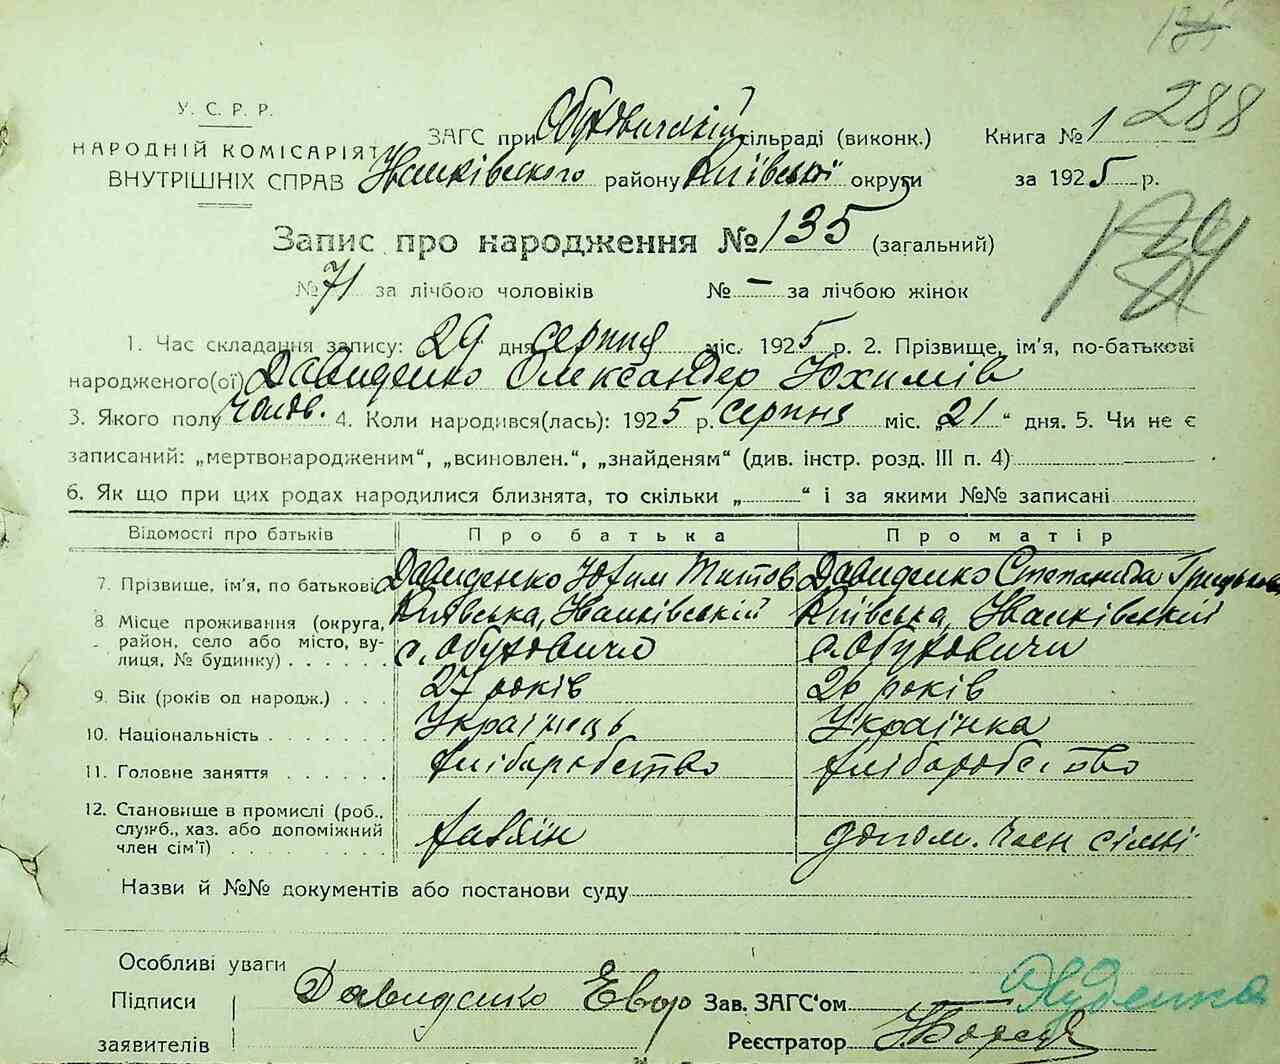 У. С. Р. Р.
НАРОДНІЙ КОМІСАРІЯТ
ВНУТРІШНІХ СПРАВ
288
ЗАГС при Обуховичській сільраді (виконк.) Книга № 1
Іванківського району Київської округи за 1925 р.
Запис про народження № 135 (загальний)
№ 71 за лічбою чоловіків № — за лічбою жінок
1. Час складання запису: 29 дня серпня міс. 1925 р. 2. Прізвище, ім'я, по-батькові
народженого(ої) Давиденко Олександер Юхимів
3. Якого полу чолов. 4. Коли народився(лась): 1925 р. серпня міс. „21“ дня. 5. Чи не є
записаний: „мертвонародженим“, „всиновлен.“, „знайденям“ (див. інстр. розд. III п. 4)
6. Як що при цих родах народилися близнята, то скільки „ “ і за якими №№ записані
Відомості про батьків Про батька Про матір
7. Прізвище, ім'я, по батькові Давиденко Юхим Титов Давиденко Степанида
8 Місце проживання (округа, Київська, Іванківській Київська, Іванківській
район, село або місто, ву- с. Обуховичи с. Обуховичи
лиця, № будинку)
9. Вік (років од народж.) 27 років 26 років
10. Національність Українець Українка
11. Головне заняття хліборобство хліборобство
12. Становище в промислі (роб.,
служб., хаз. або допоміжний хазяїн допом. член сімʼї
член сім'ї)
Назви й №№ документів або постанови суду
Особливі уваги
Підписи Давиденко Зав. ЗАГС'ом
заявителів Реєстратор